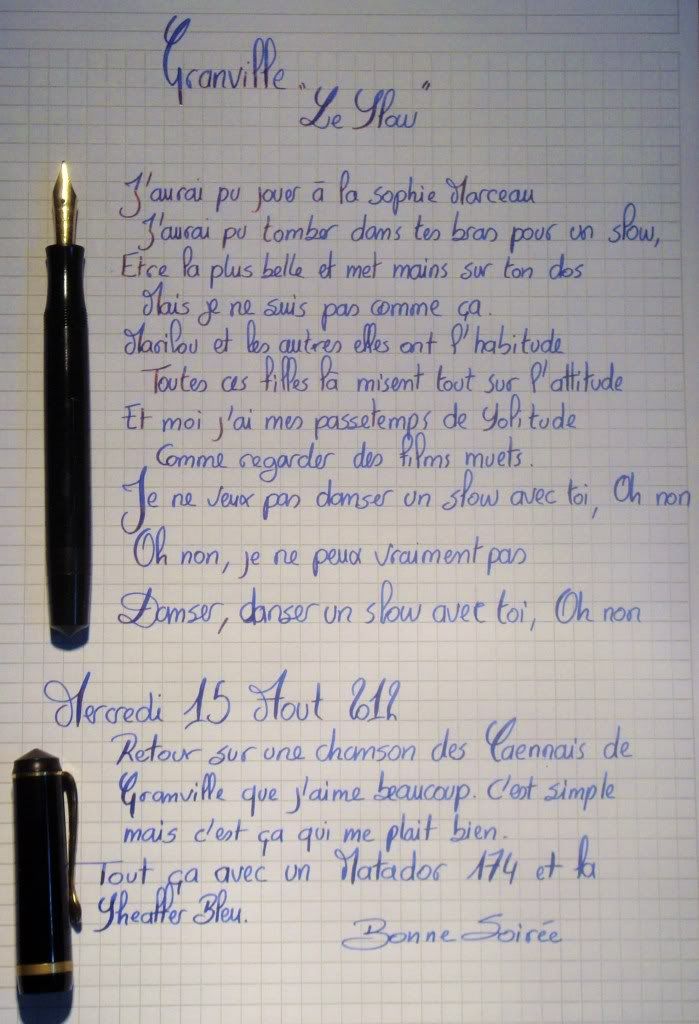 Granville
"Le Slow"
J'aurai pu jouer à la Sophie Marceau
J'aurai pu tomber dans tes bras pour un slow,
Etre la plus belle et met mains sur ton dos
Mais je ne suis pas comme ça.
Marilou et les autres elles ont l'habitude
Toutes ces filles là misent tout sur l'attitude
Et moi j'ai mes passetemps de Solitude
Comme regarder des films muets.
Je ne veux pas danser un slow avec toi, Oh non
Oh non, je ne peux vraiment pas
Danser, danser un slow avec toi, Oh non
Mercredi 15 Aout 2012
Retour sur une chanson des Caennais de
Granville que j'aime beaucoup. C'est simple
mais c'est ça qui me plait bien.
Tout ça avec un Matador 174 et la
Sheaffer Bleu.
Bonne Soirée